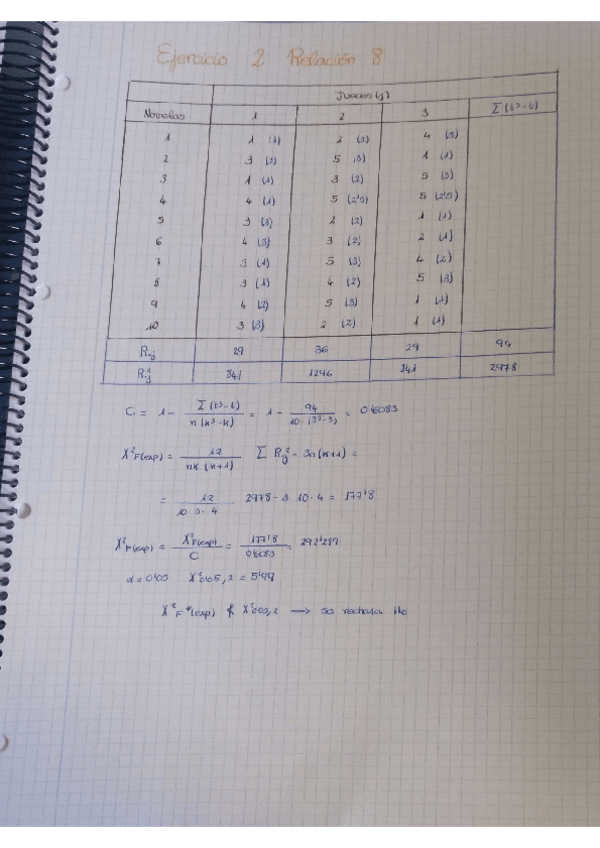 Ejercicio 2 Relación 8
Jueces (j)
Novelas 1 2 3 Σ(t³-t)
1 1 (1) 2 (2) 4 (3)
2 3 (2) 5 (3) 1 (1)
3 1 (1) 3 (2) 5 (3)
4 4 (1) 5 (2'5) 5 (2'5)
5 3 (3) 2 (2) 1 (1)
6 4 (3) 3 (2) 2 (1)
7 3 (1) 5 (3) 4 (2)
8 3 (1) 4 (2) 5 (3)
9 4 (2) 5 (3) 1 (1)
10 3 (3) 2 (2) 1 (1)
R.j 29 36 29 94
R.j² 841 1296 841 2978
C = 1 - Σ(t³-t) / n(k³-k) = 1 - 94 / 10·(3³-3) = 0'6083
X²F(exp) = 12 / nk(k+1) Σ R.j² - 3n(k+1) =
= 12 / 10·3·4 2978 - 3·10·4 = 177'8
X²F(exp) = X²F(exp) / C = 177'8 / 0'6083 = 292'289
α = 0'05 X²0'05,2 = 5'99
X²F*(exp) ≮ X²0'05,2 → se rechaza Ho